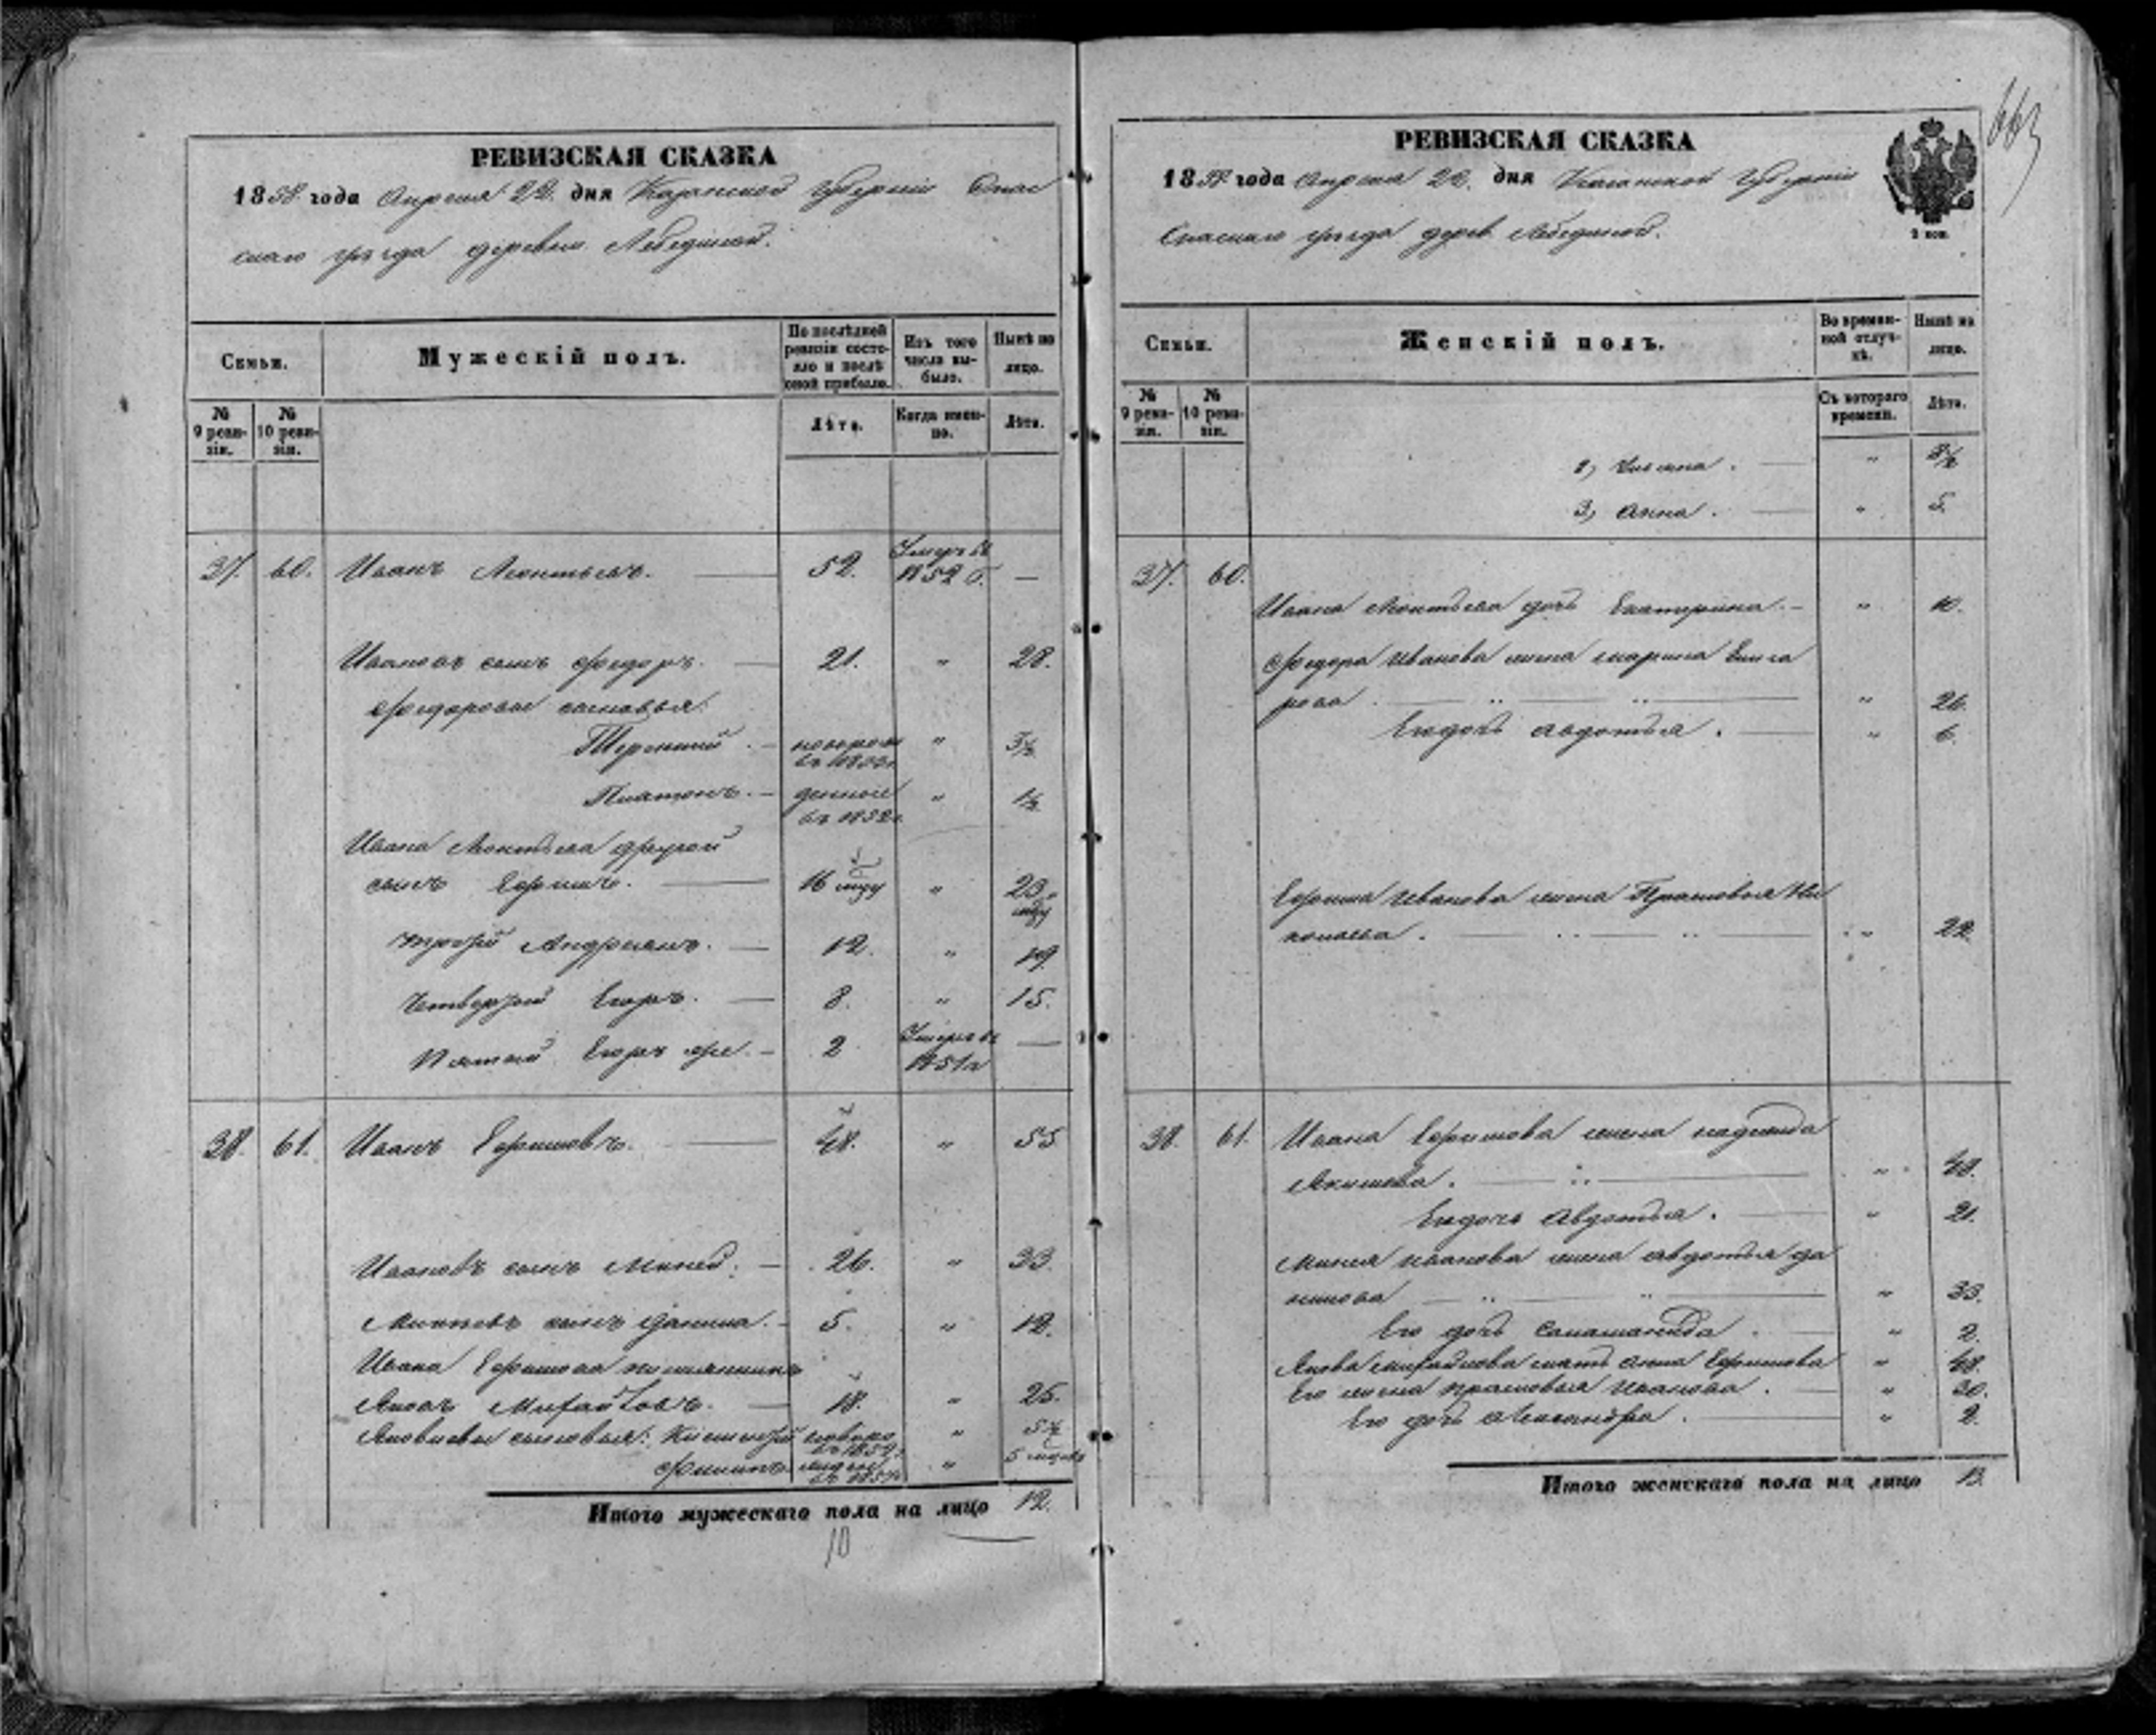 РЕВИЗСКАЯ СКАЗКА
1858 года Апреля 22 дня Казанской губернии Спас
скаго уѣзда деревни Лебединой.
Семьи.
Мужескій полъ.
По послѣдней ревизіи состо-
яло и послѣ оной прибыло.
Изъ того числа вы-
было.
Нынѣ на лицо.
№ 9 реви-
зіи.
№ 10 реви-
зіи.
Лѣта.
Когда имен-
но.
Лѣта.
37. 60. Иванъ Леонтьевъ. 52. Умеръ въ 1852 г. —
Ивановъ сынъ Федоръ. 21. " 28.
Федоровы сыновья
Терентий. — новорож " 3½
Платонъ. — денные " 1½
Ивана Леонтьева другой
сынъ Ефимъ. 16 " 23
третій Андреянъ. — 12. " 19.
четвертый Егоръ. — 8. " 15.
Пятый Егоръ же. — 2 Умеръ въ 1851 г —
38. 61. Иванъ Ефимовъ. 48. " 55
Ивановъ сынъ Миней. — 26. " 33.
Минеевъ сынъ Данила. — 5. " 12.
Ивана Ефимова племянникъ
Яковъ Михайловъ. 18. " 25.
Яковлевы сыновья: " 5½
Филипъ. " 5
Итого мужескаго пола на лицо 12.
10
663
РЕВИЗСКАЯ СКАЗКА
1858 года Апреля 22. дня Казанской Губерніи
Спаскаго уѣзда дерев. Лебединой.
2 коп.
Семьи.
Женскій полъ.
Во времен-
ной отлуч-
кѣ.
Нынѣ на лицо.
№ 9 реви-
зіи.
№ 10 реви-
зіи.
Съ котораго времени.
Лѣта.
2,
3, Анна. " 5.
37. 60.
Ивана Леонтьева дочь Екатерина. — " 10.
Федора Иванова жена Марина
рова. " 26.
Его дочь Авдотья. " 6.
Ефима Иванова жена Прасковья Ни
колаева. " 22.
38. 61. Ивана Ефимова жена Надежда
Якимова. " 48.
Его дочь Авдотья. " 21.
Минея Иванова жена Авдотья Да
нилова " 33.
Его дочь " 2.
Якова Михайлова мать Анна Ефимова " 48.
Его жена Прасковья Иванова. " 30.
Его дочь Александра. " 2.
Итого женскаго пола на лицо 13.